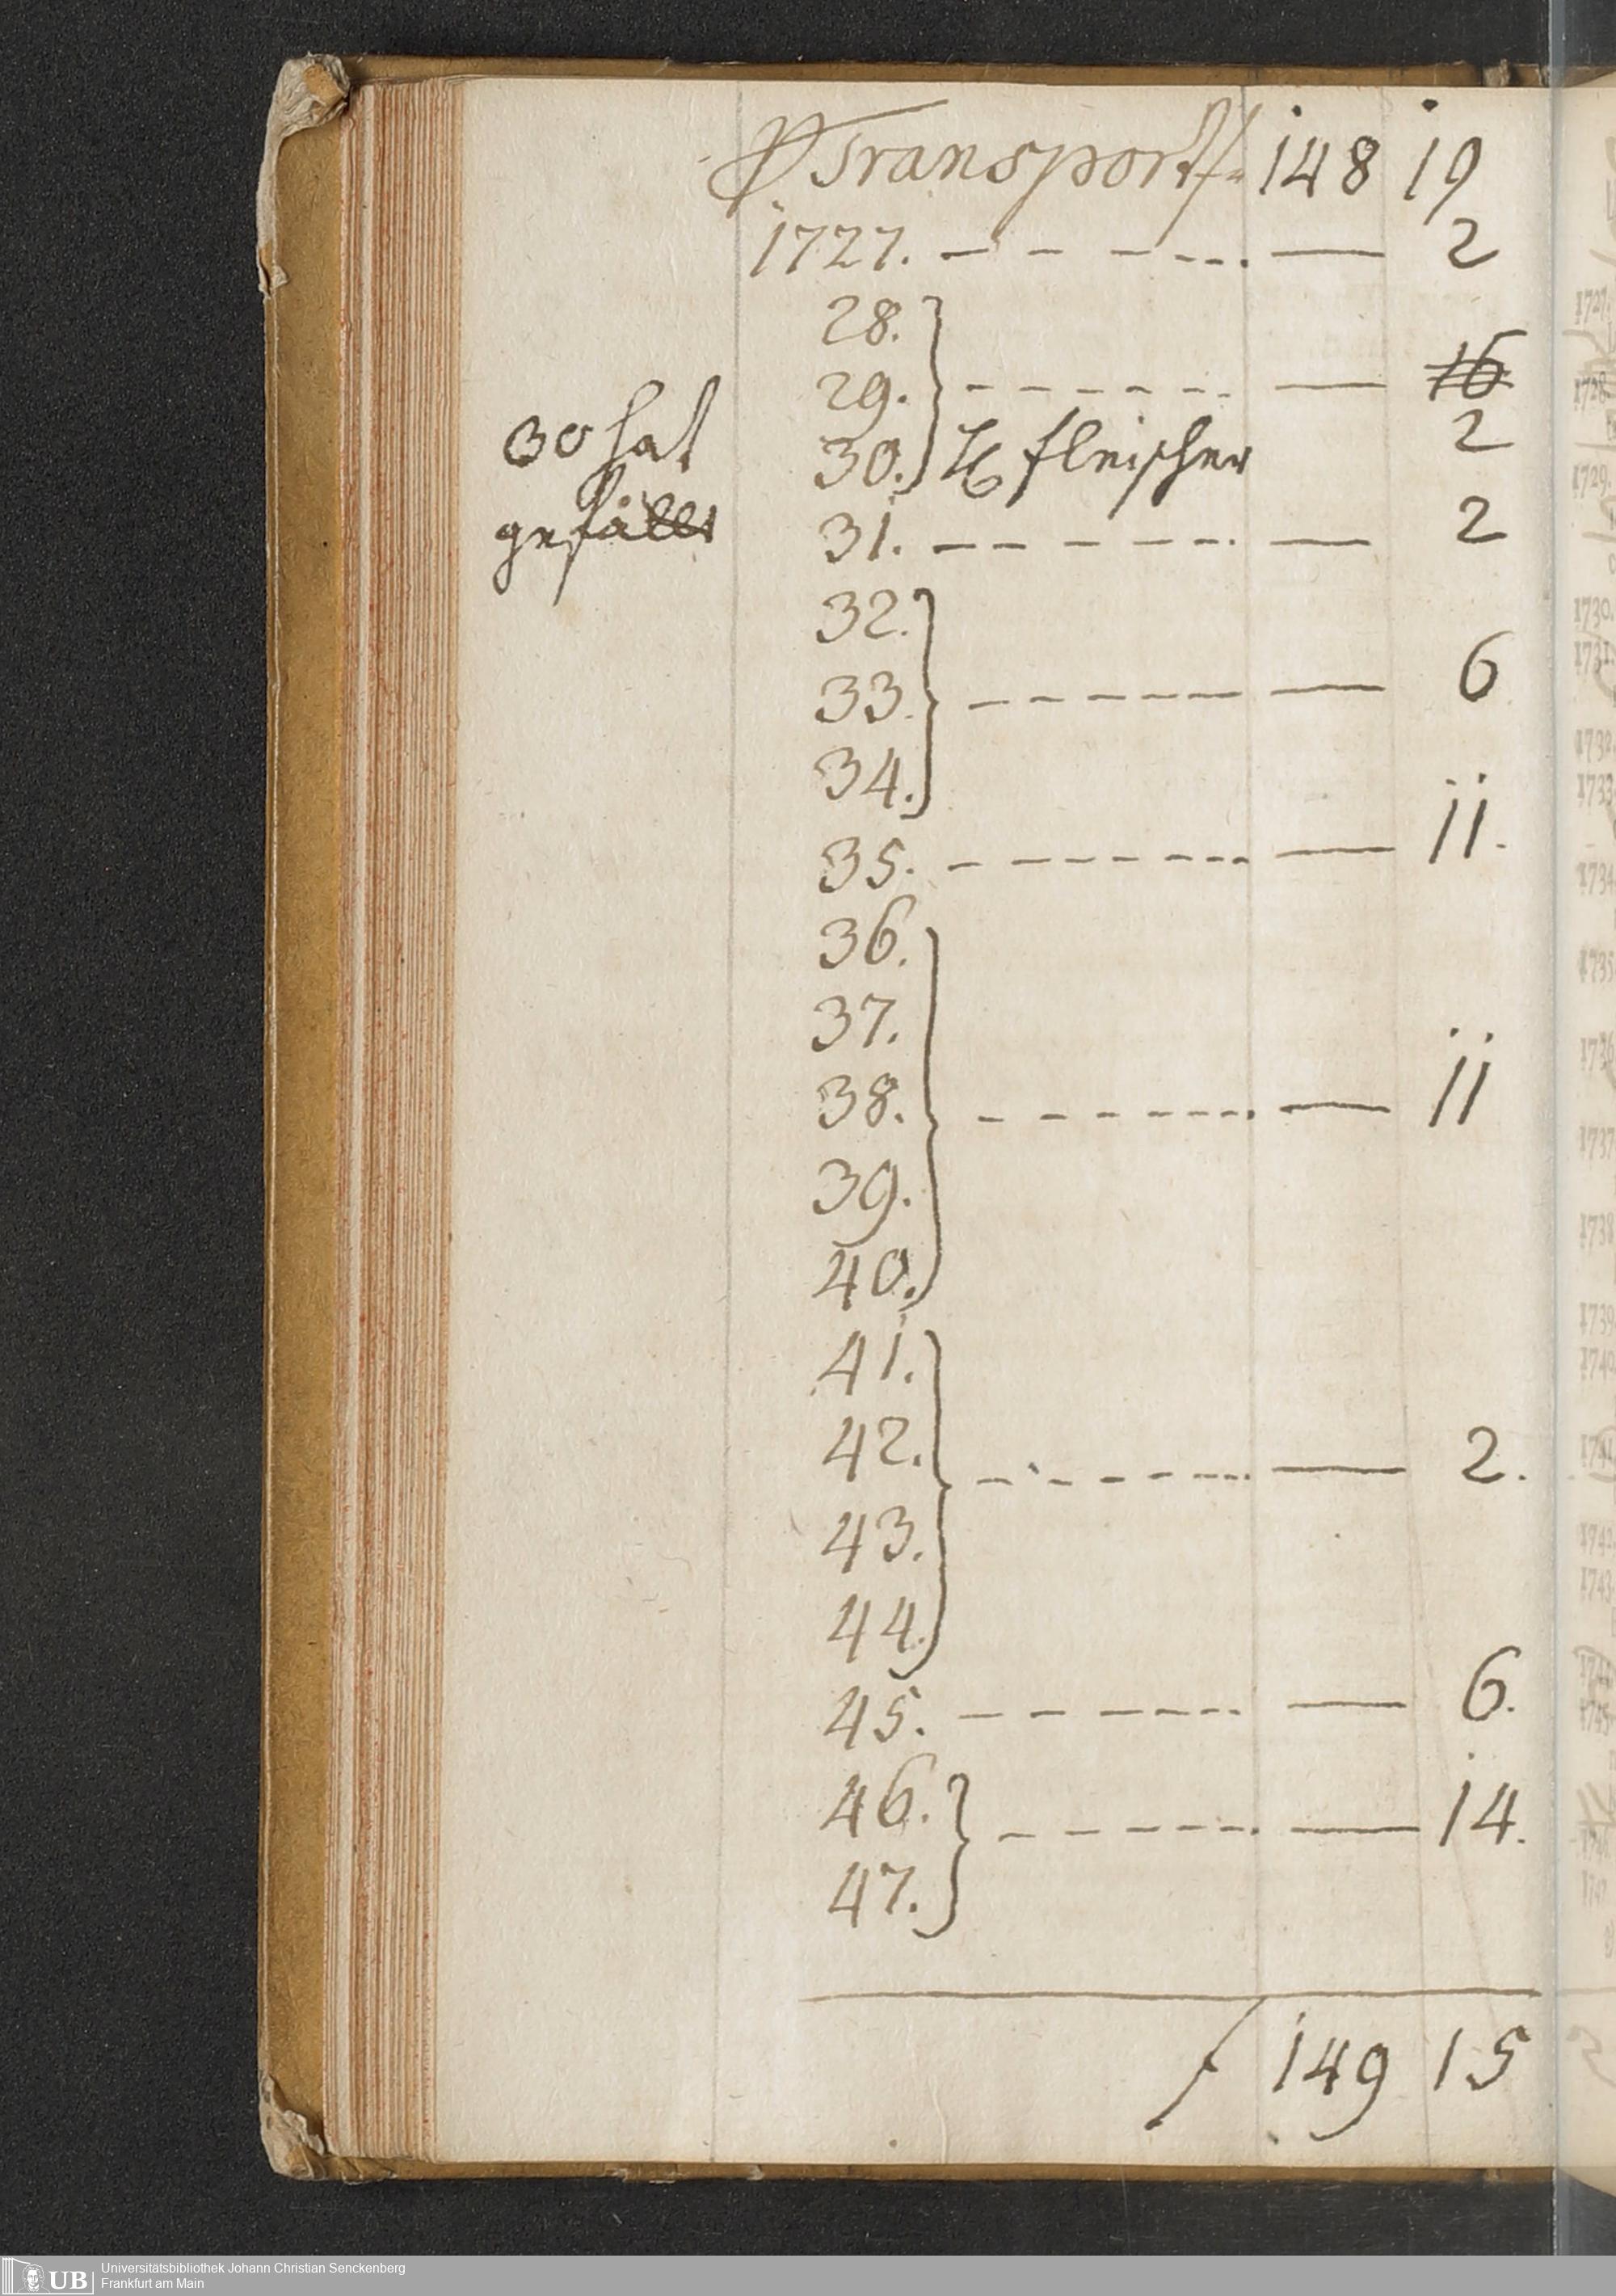 Transport f 148 19
1727. — 2
28.
29. — 16
30 hat
30. H fleischer 2
gefällt
31. — 2
32.
33. — 6
34.
35. — 11.
36.
37.
38. — 11
39.
40.
41.
42. — 2.
43.
44.
45. — 6.
46. — 14.
47.
f 149 15
UB Universitätsbibliothek Johann Christian Senckenberg
Frankfurt am Main